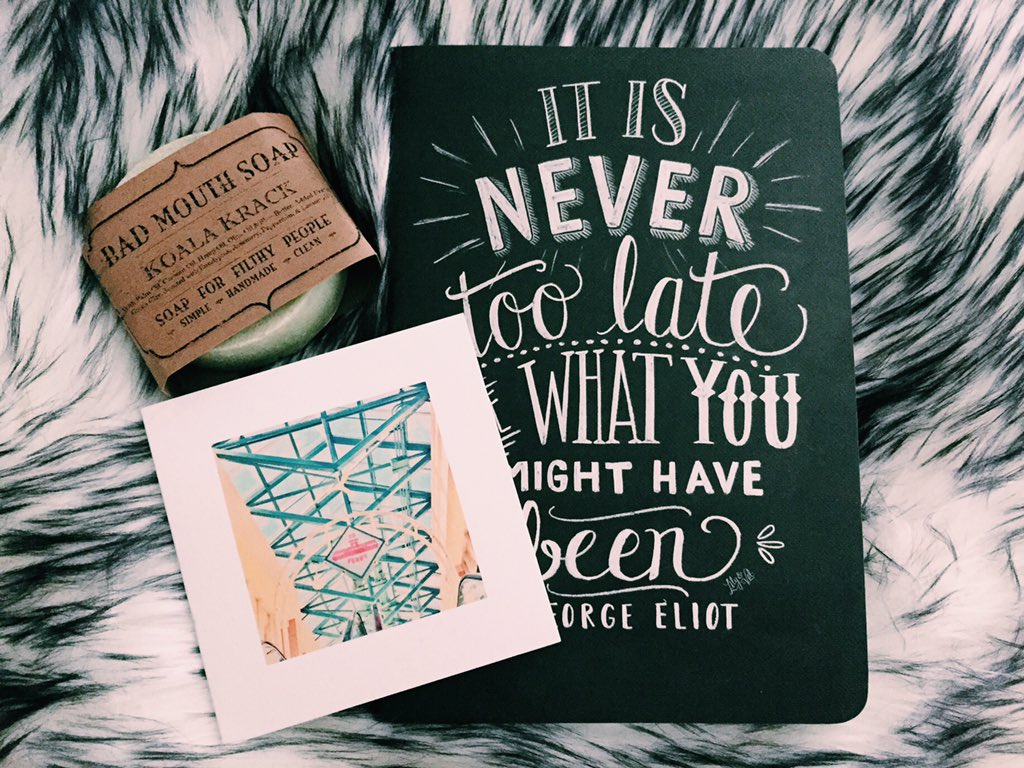 BAD MOUTH SOAP
KOALA KRACK
SOAP FOR FILTHY PEOPLE
SIMPLE HANDMADE CLEAN
IT IS
NEVER
too late
WHAT YOU
MIGHT HAVE
been
EORGE ELIOT
FERRY